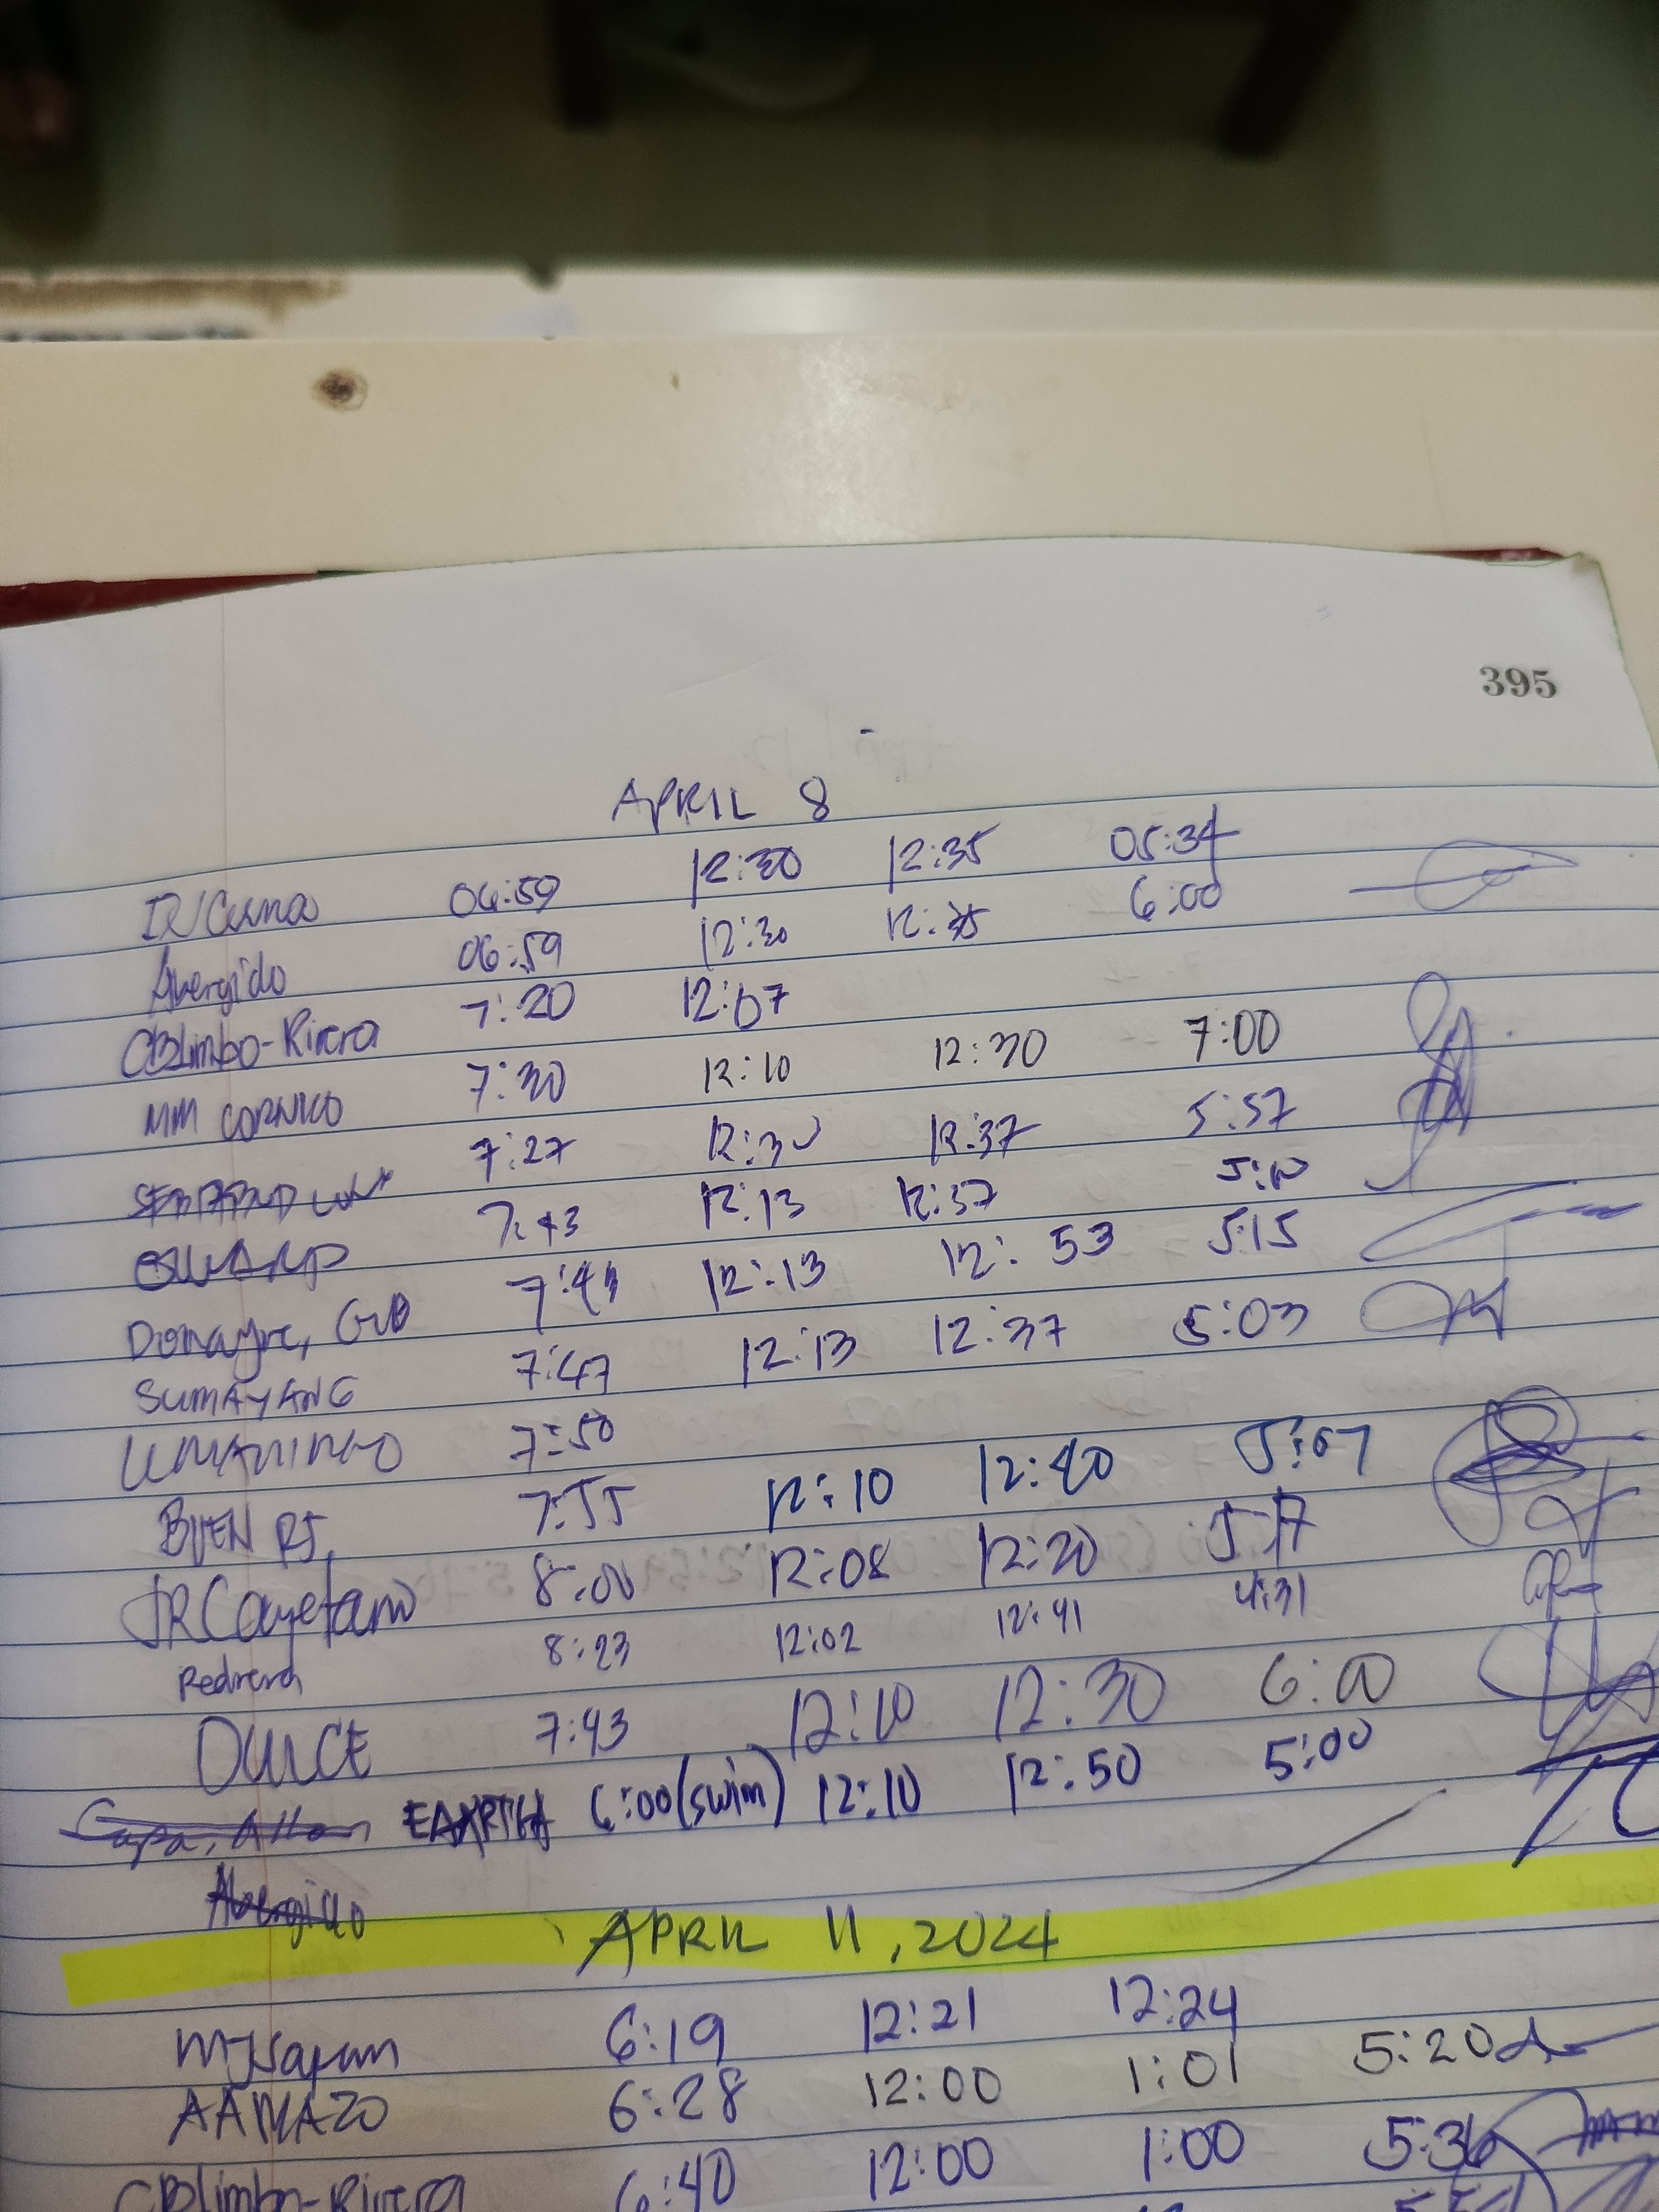 395
APRIL 8
06:59 12:30 12:35 05:34
Abergido 06:59 12:30 12:35 6:00
CBLimbo-Rivera 7:20 12:07
MM CORNICO 7:30 12:10 12:30 7:00
7:27 12:30 12:37 5:57
7:43 12:13 12:37 5:10
Donayre, 7:43 12:13 12:53 5:15
SUMAYANG 7:47 12:13 12:37 5:03
UMANINGO 7:50
BUEN RJ, 7:55 12:10 12:40 5:07
JRCayetano 8:00 12:08 12:20 5:17
8:23 12:02 12:41 4:31
DULCE 7:43 12:10 12:30 6:00
Capa, Allan EARTH 6:00(swim) 12:10 12:50 5:00
Abergido
APRIL 11, 2024
6:19 12:21 12:24
AAMAZO 6:28 12:00 1:01 5:20
CBLimbo-Rivera 6:40 12:00 1:00 5:36